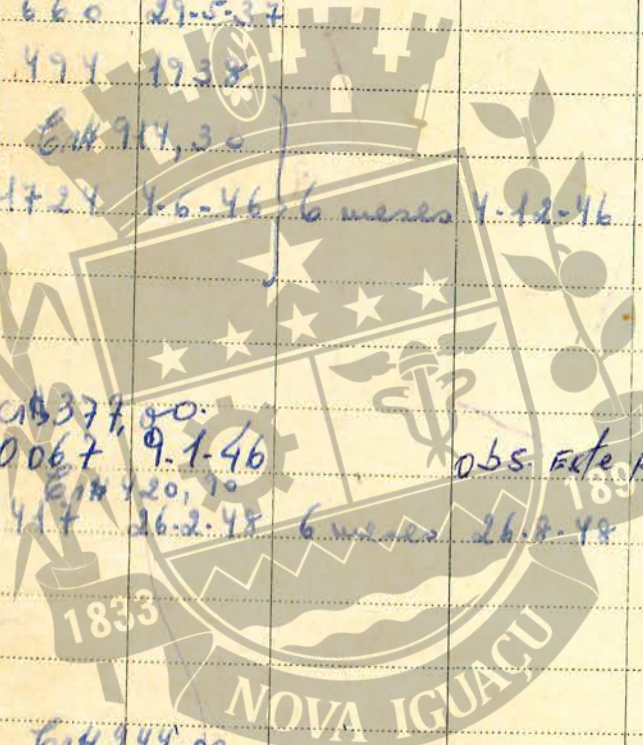 660 29-5-37
494 1938
Cr$ 914,30
1724 4-6-46 6 meses 4-12-46
Cr$ 377,90.
0067 9-1-46 obs. Este
Cr$ 420,90
417 26-2-48 6 meses 26-8-48
Cr$ 944,00
1833
189
NOVA IGUAÇU